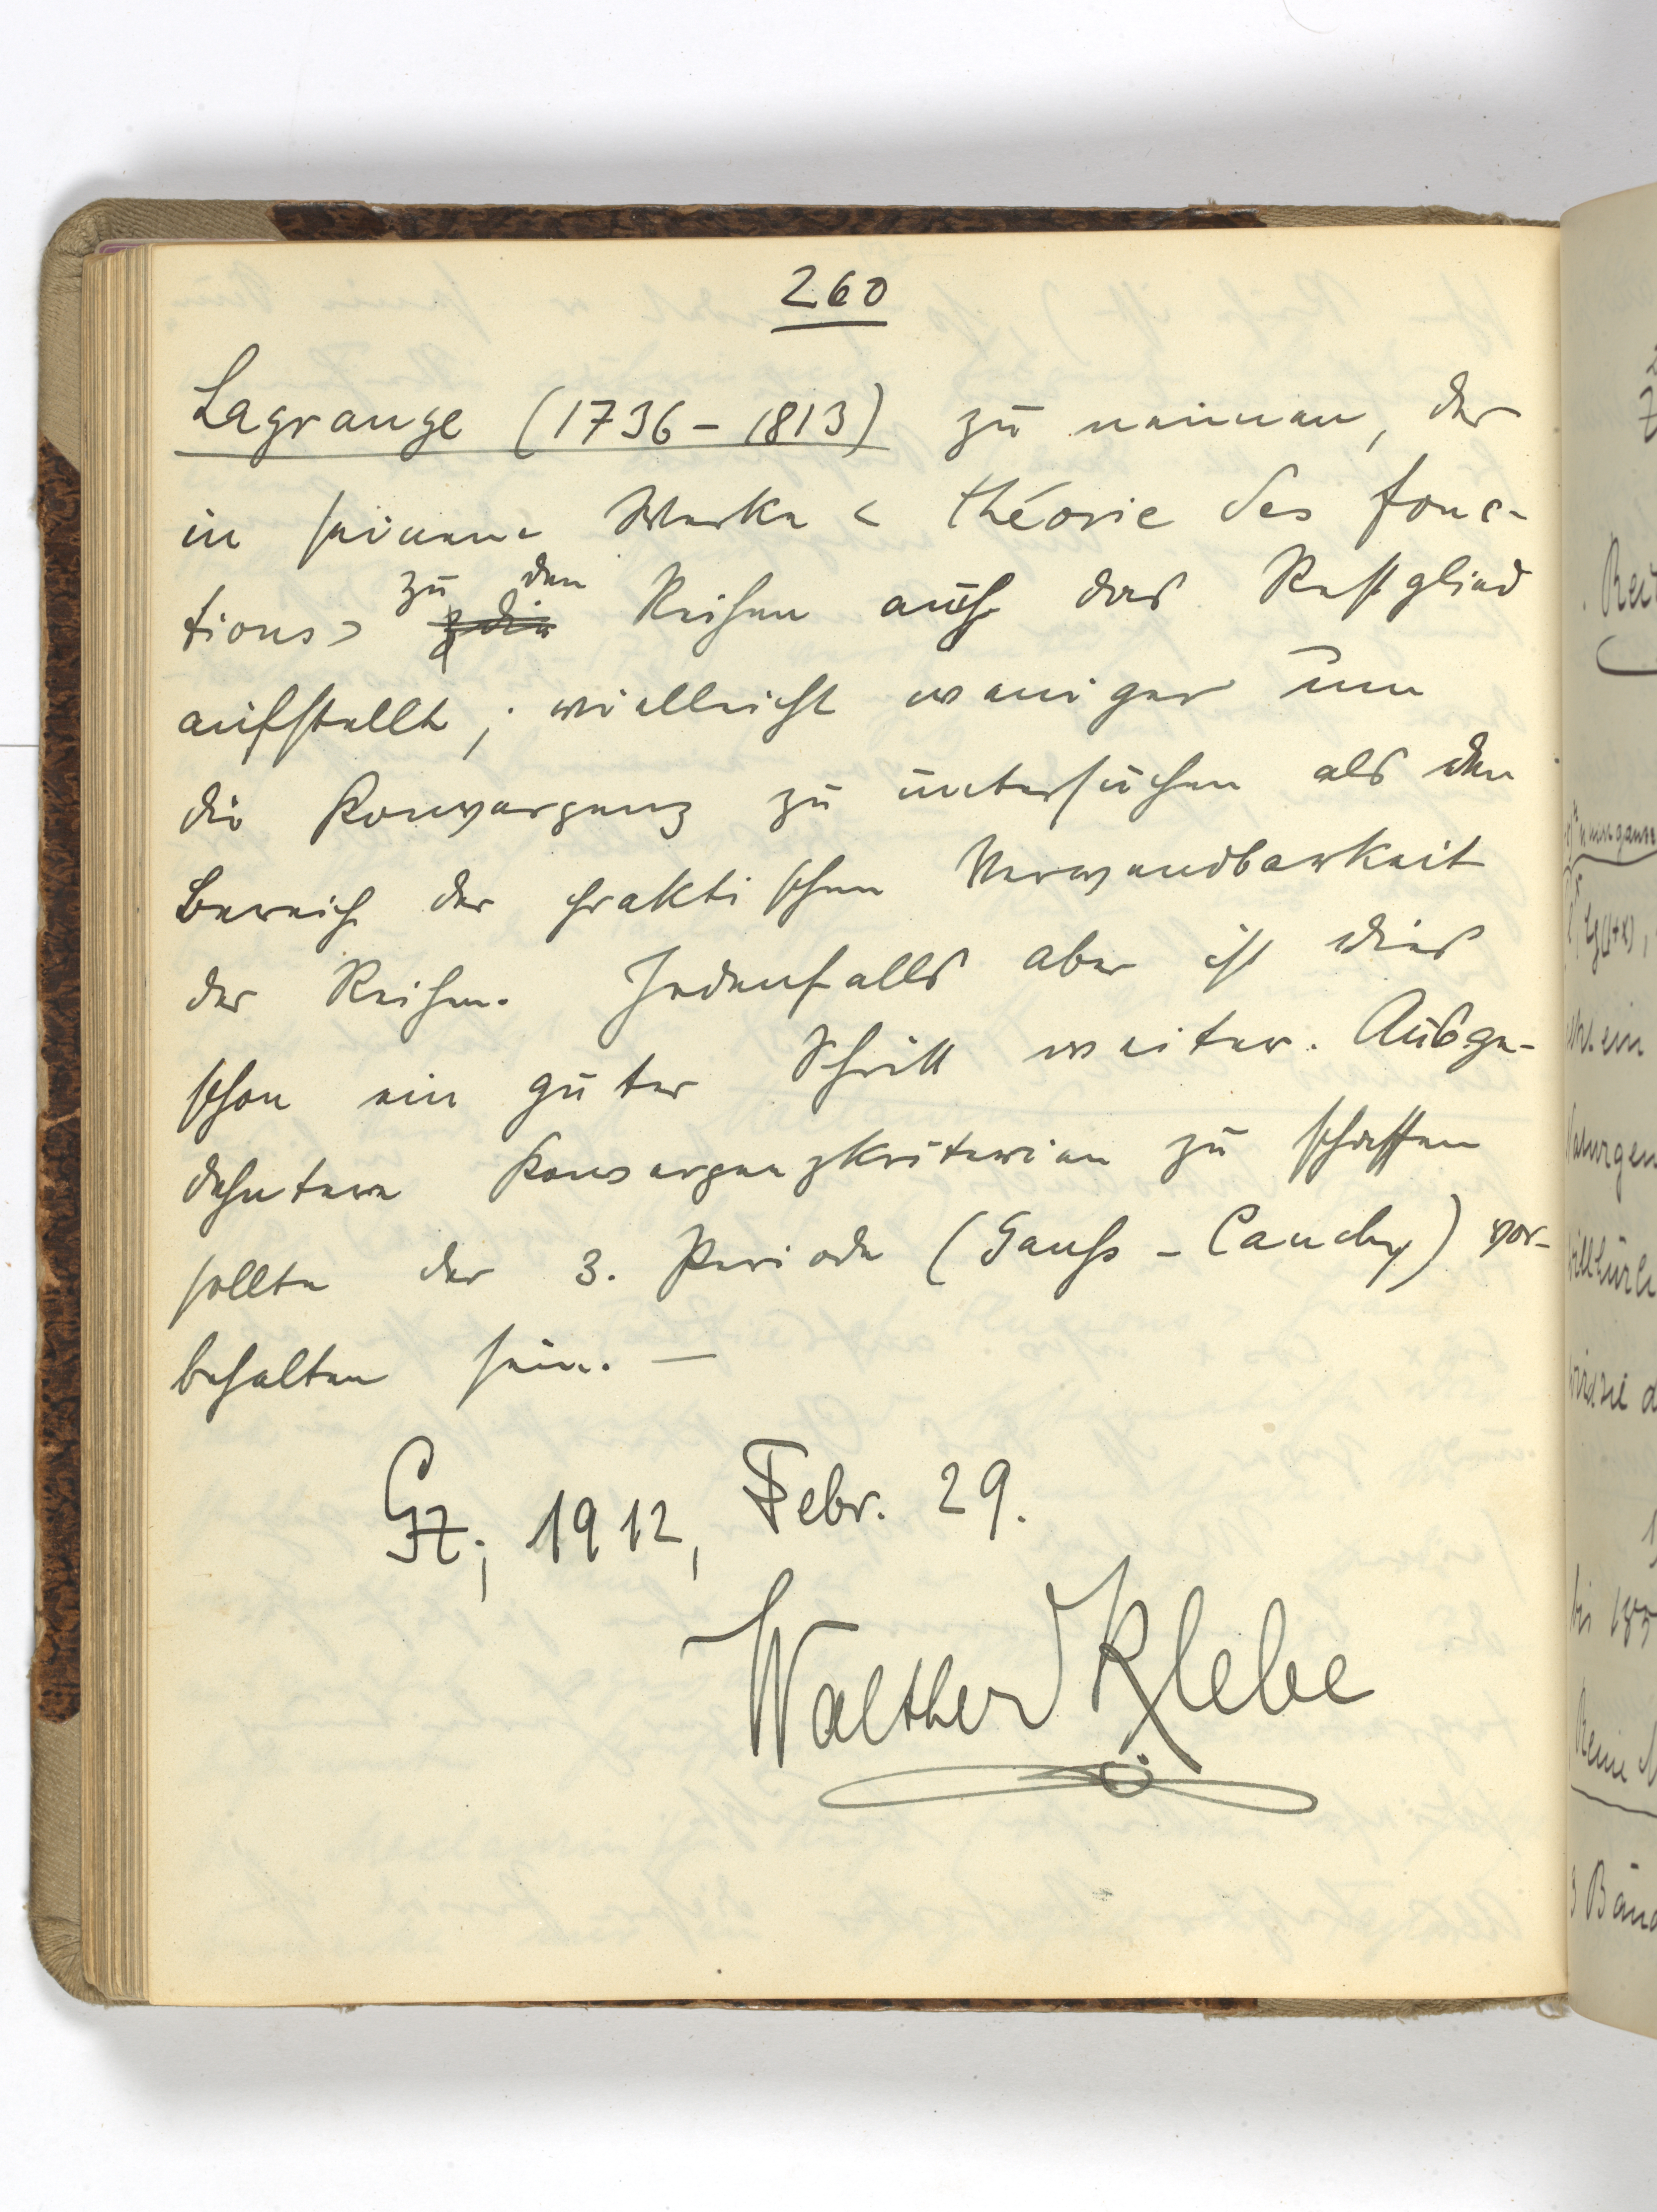 260
Lagrange (1736 – 1813) zu nennen, der
in seinem Werke < théorie des fonc-
tions > zu den Reihen auch das Restglied
aufstellt; vielleicht weniger um
die Konvergenz zu untersuchen als den
Bereich der praktischen Verwendbarkeit
der Reihen. Jedenfalls aber ist dies
schon ein guter Schritt weiter. Ausge-
dehntere Konvergenzkriterien zu schaffen
sollte der 3. Periode (Gauß – Cauchy) vor-
behalten sein. —
Gz; 1912, Febr. 29.
Walther Klebe